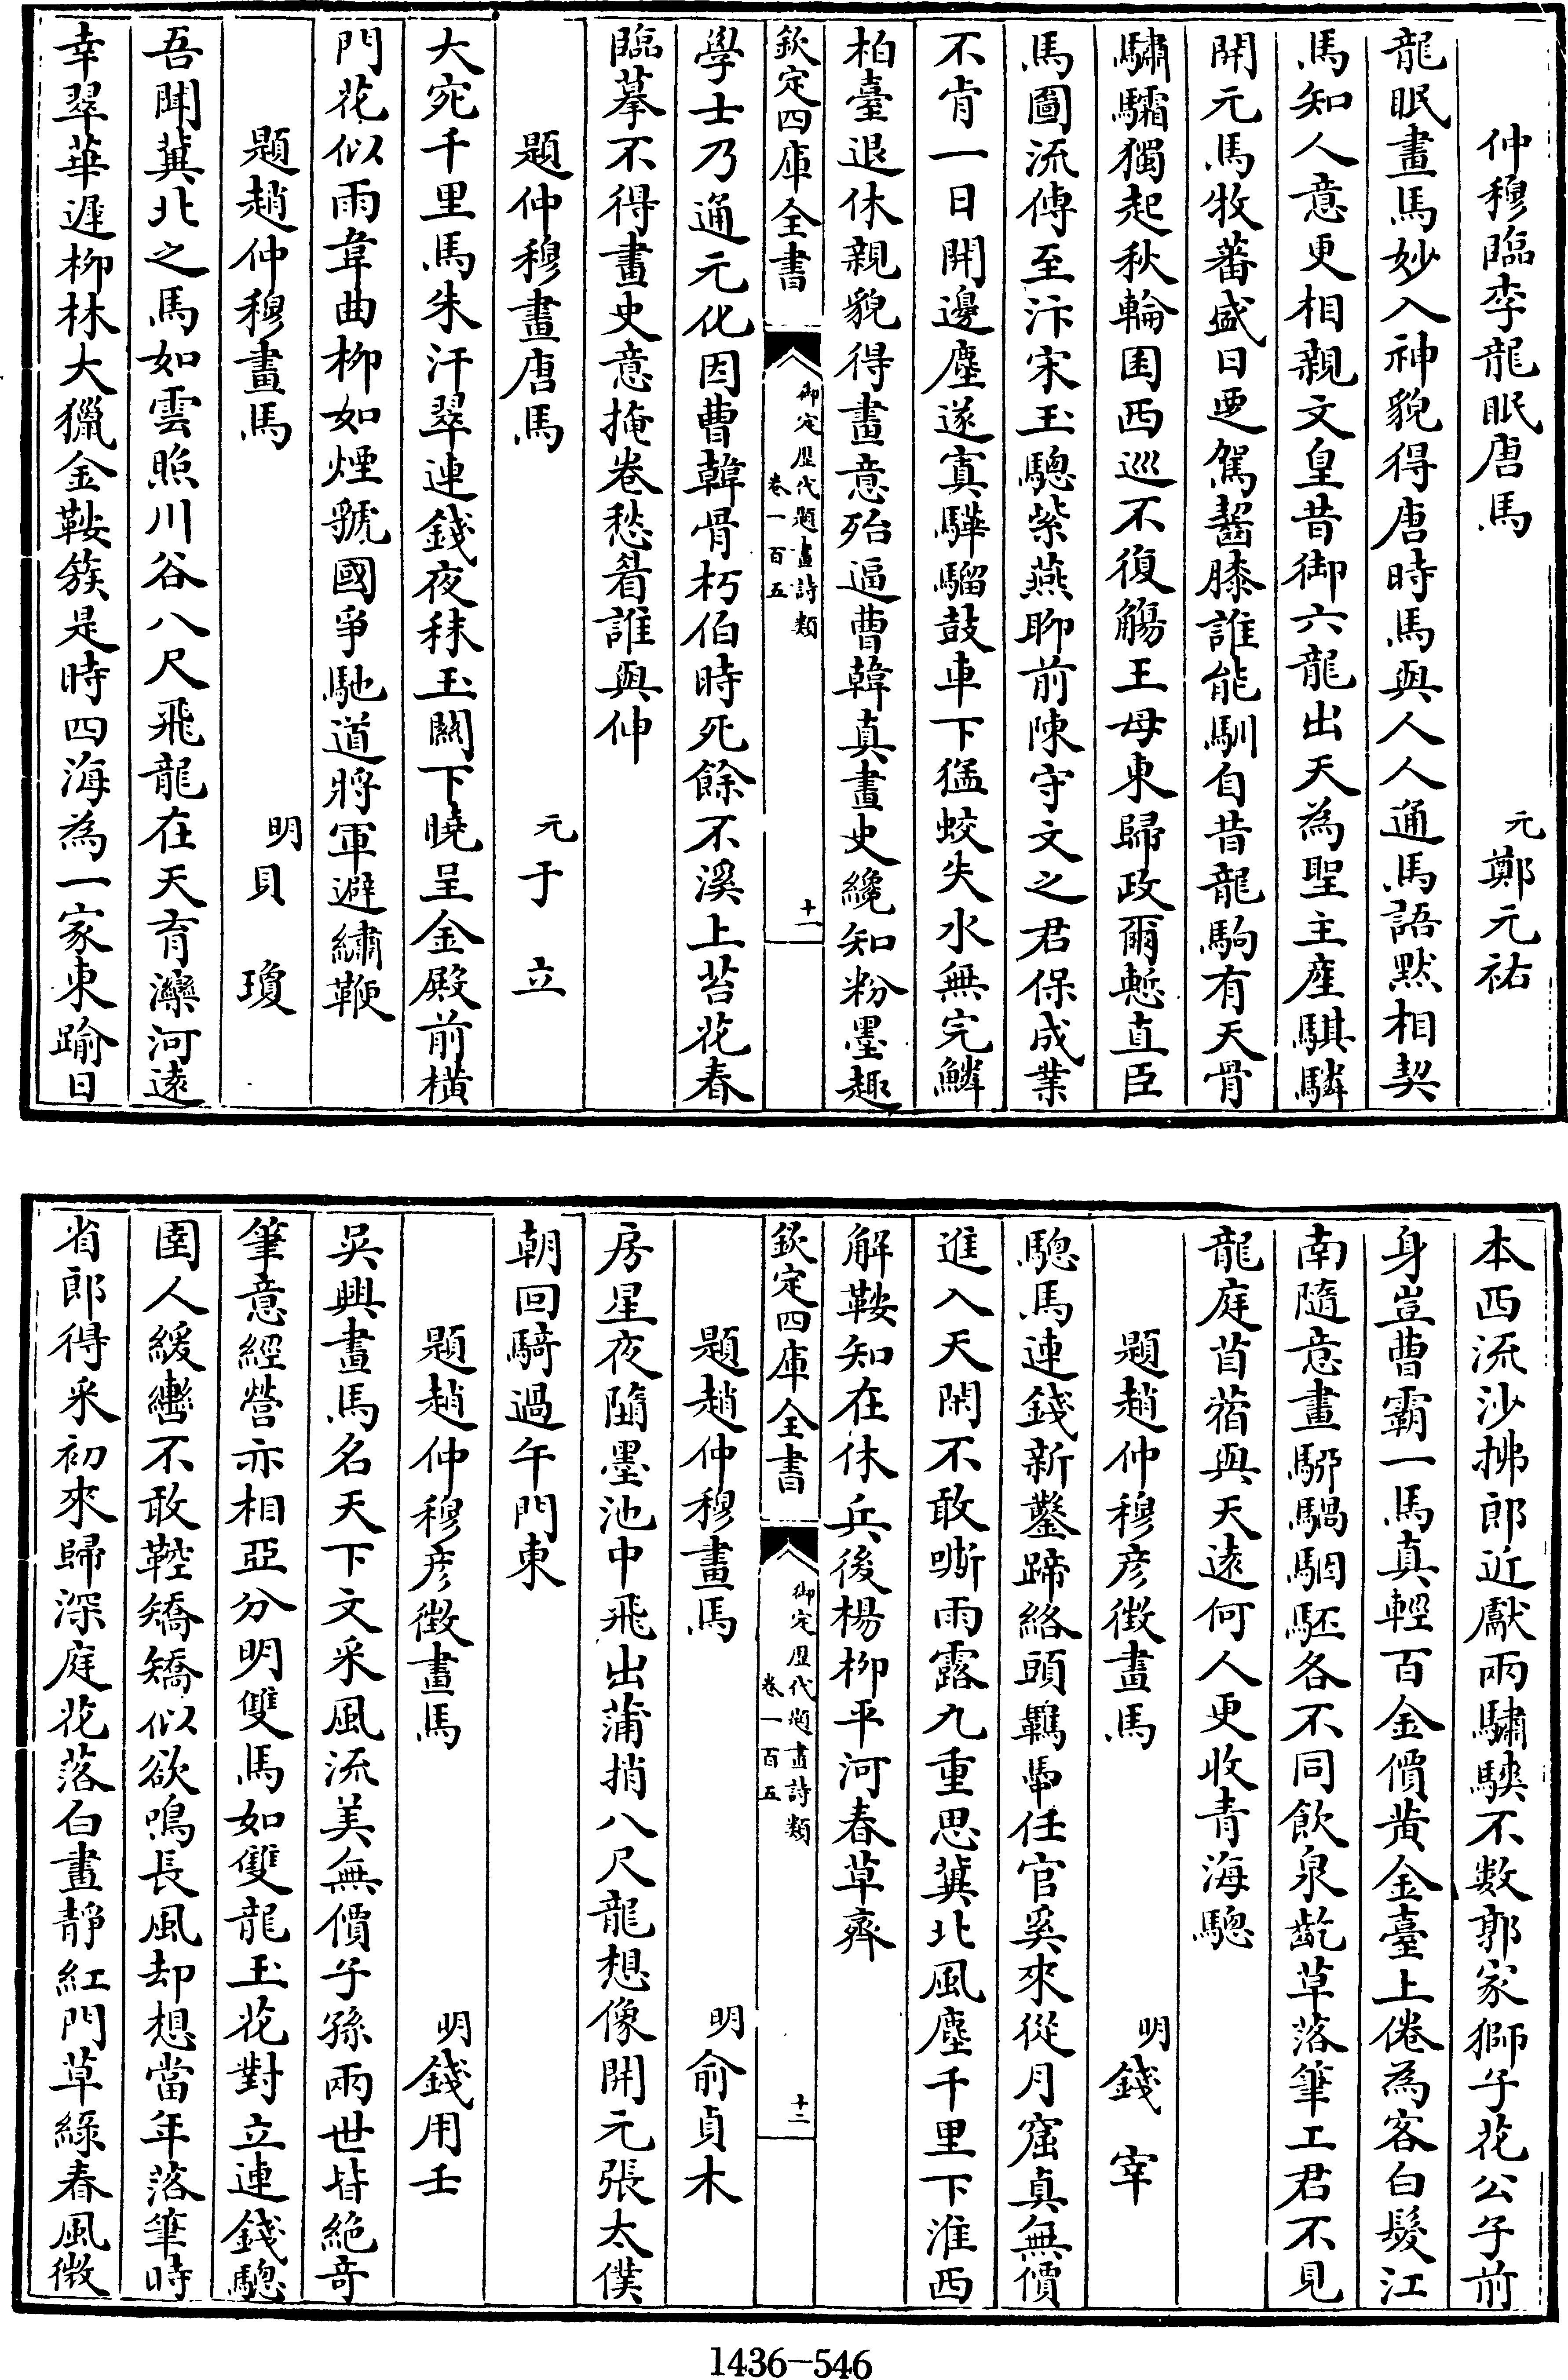 仲穆臨李龍眠唐馬　元鄭元祐
龍眠畫馬妙入神貌得唐時馬與人人通馬語默相契
馬知人意更相親文皇昔御六龍出天為聖主產騏驎
開元馬牧蕃盛日西駕齧膝誰能馴自昔龍駒有天骨
驌驦獨起秋輪囷西巡不復觴王母東歸政爾慙直臣
馬圖流傳至汴宋玉驄紫燕聊前陳守文之君保成業
不肯一日開邊塵遂寘驊騮鼓車下猛蛟失水無完鱗
柏臺退休親貌得畫意殆逼曹韓真畫史纔知粉墨趣
欽定四庫全書　御定歷代題畫詩類　卷一百五　十一
學士乃通元化因曹韓骨朽伯時死餘不溪上苕花春
臨摹不得畫史意掩卷愁看誰與伸
題仲穆畫唐馬　元于立
大宛千里馬朱汗翠連錢夜秣玉關下曉呈金殿前橫
門花似雨韋曲柳如煙虢國爭馳道將軍避繡鞭
題趙仲穆畫馬　明貝瓊
吾聞冀北之馬如雲照川谷八尺飛龍在天育灤河遠
幸翠華遲柳林大獵金鞍簇是時四海為一家東踰日
本西流沙拂郎近獻兩驌駚不數郭家獅子花公子前
身豈曹霸一馬真輕百金價黃金臺上倦為客白髮江
南隨意畫駵騧駰駓各不同飲泉齕草落筆工君不見
龍庭苜蓿與天遠何人更收青海驄
題趙仲穆彥徵畫馬　明錢宰
驄馬連錢新鑿蹄絡頭羈馽任官奚來從月窟真無價
進入天閑不敢嘶雨露九重思冀北風塵千里下淮西
解鞍知在休兵後楊柳平河春草齊
欽定四庫全書　御定歷代題畫詩類　卷一百五　十二
題趙仲穆畫馬　明俞貞木
房星夜隨墨池中飛出蒲捎八尺龍想像開元張太僕
朝回騎過午門東
題趙仲穆彥徵畫馬　明錢用壬
吳興畫馬名天下文采風流美無價子孫兩世皆絕奇
筆意經營亦相亞分明雙馬如雙龍玉花對立連錢驄
圉人緩轡不敢鞚矯矯似欲鳴長風却想當年落筆時
省郎得采初來歸深庭花落白晝靜紅門草綠春風微
1436—546